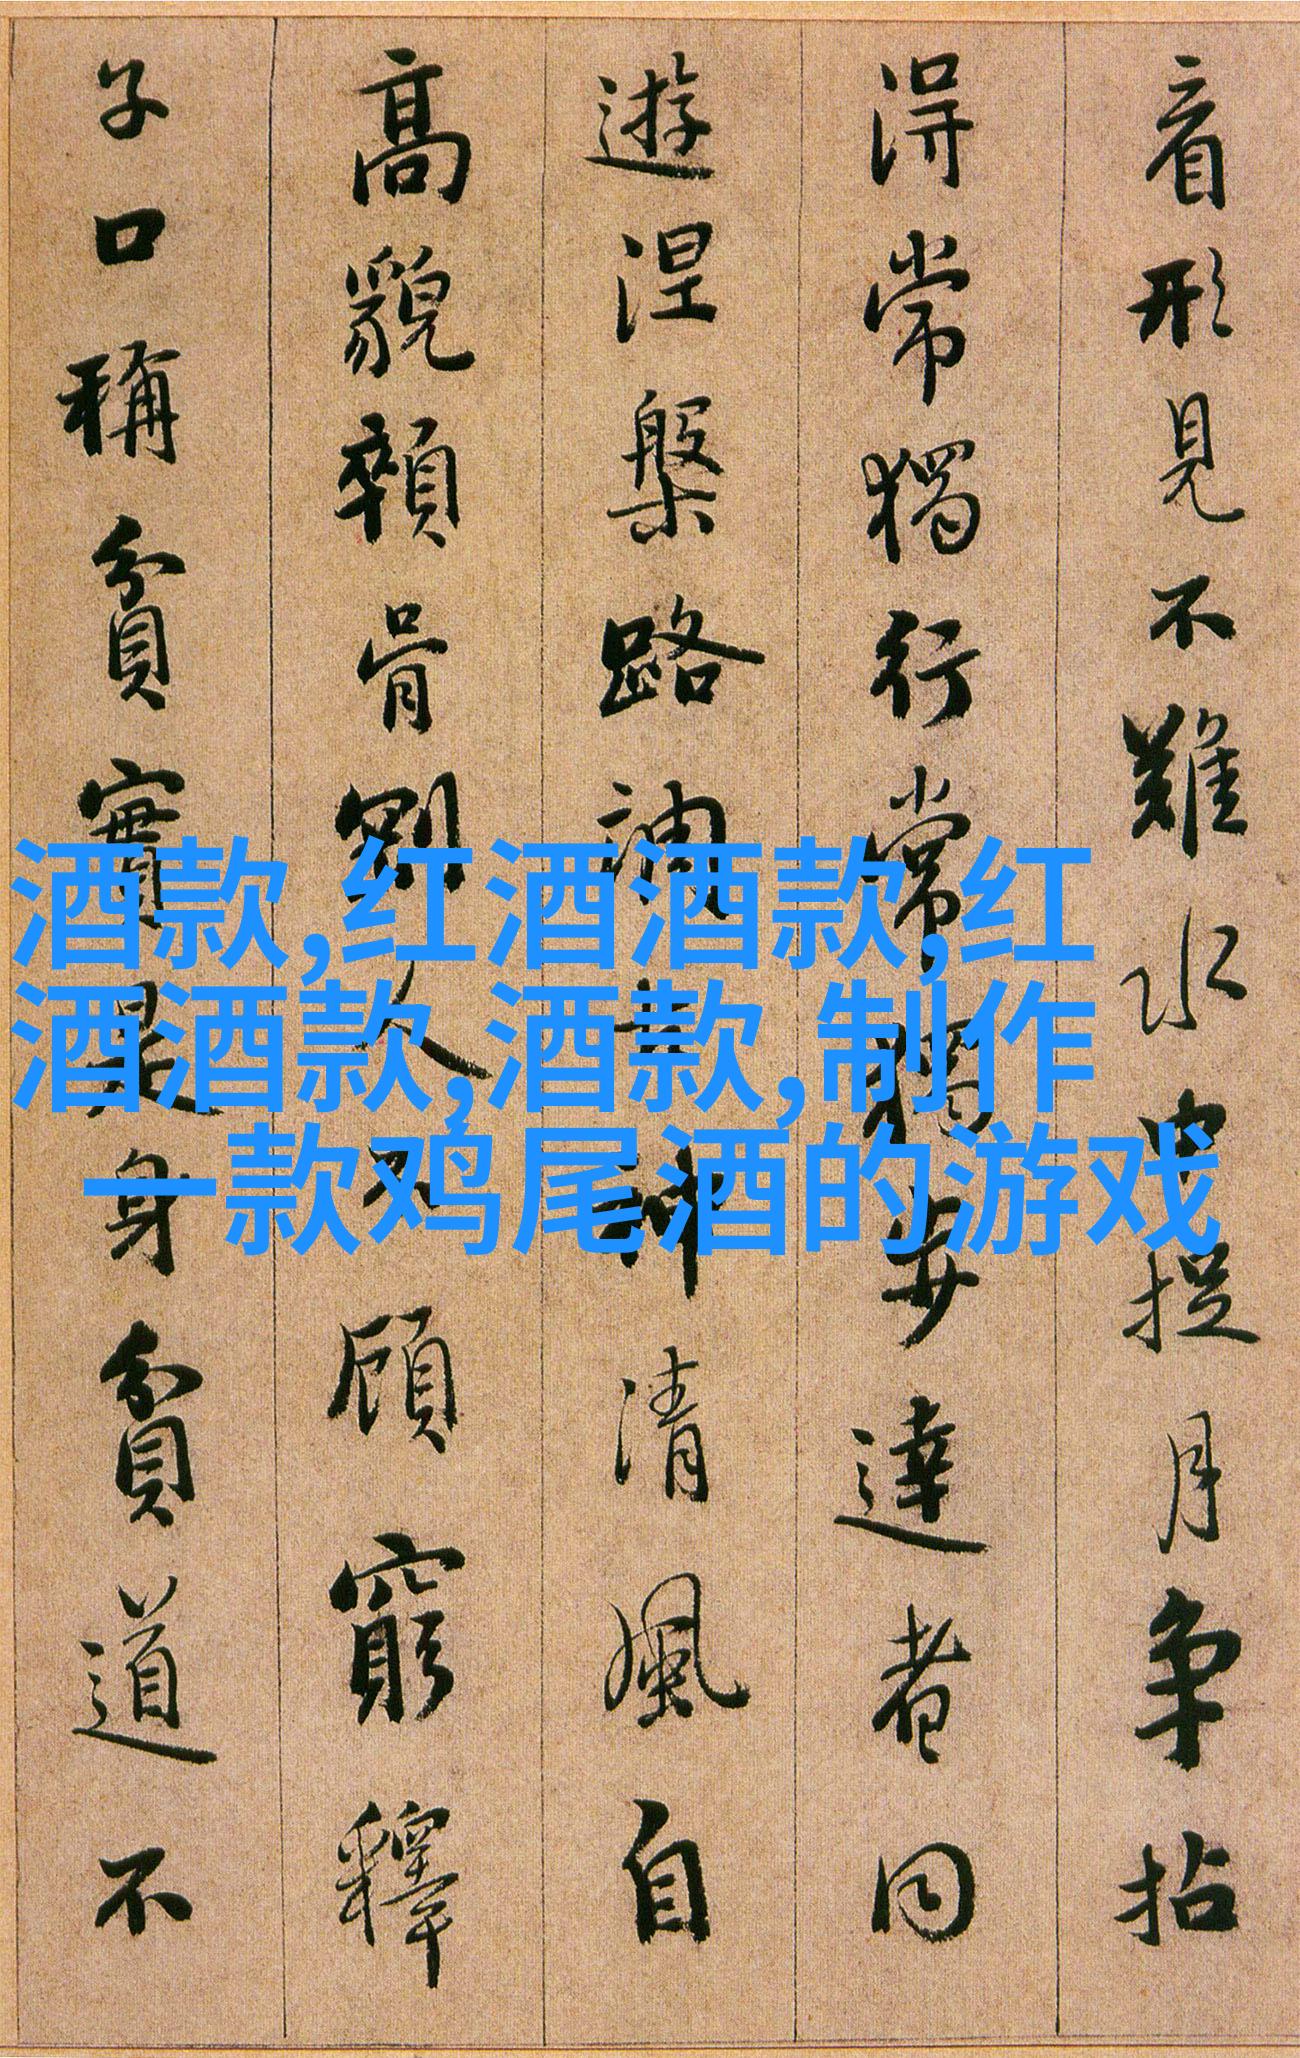 音形見不難水中捉月爭拈
得常獨行常獨步達者同
遊涅槃路調古神清風自
高貌顇骨剛人不顧窮釋
子口稱貧實是身貧道不
酒款,红酒酒款,红
酒酒款,酒款,制作
一款鸡尾酒的游戏